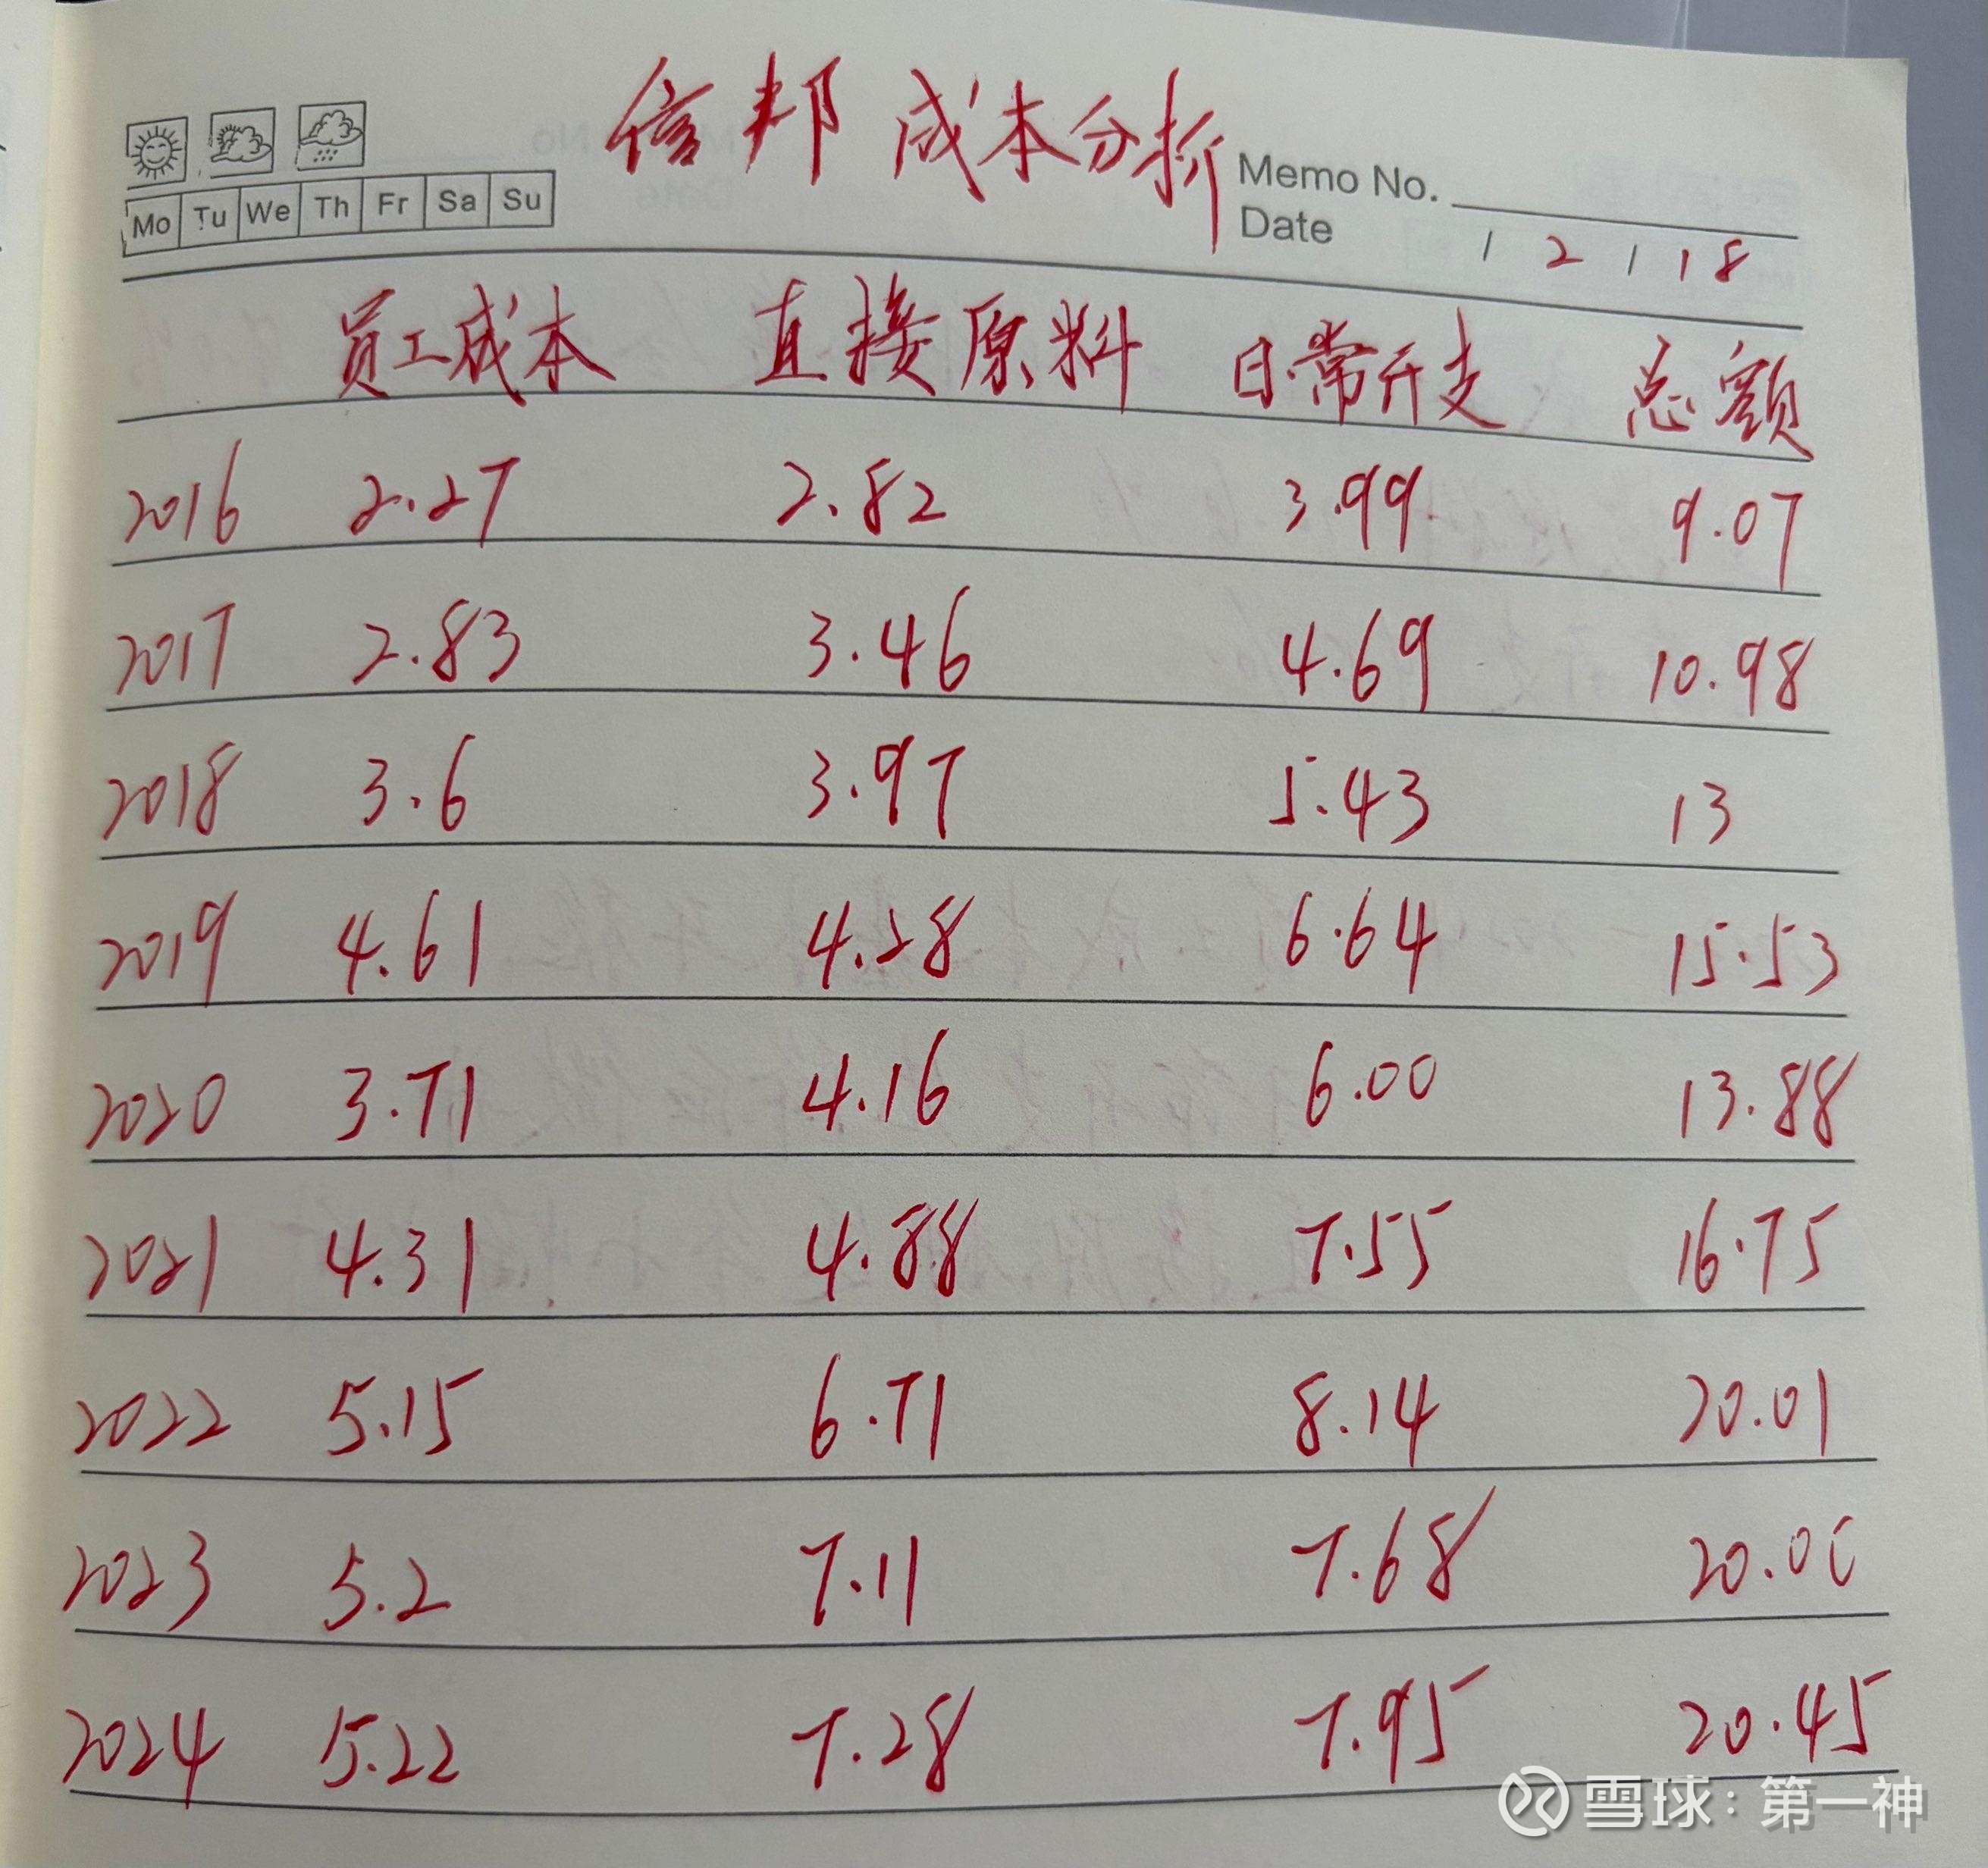 信邦 成本分析
Memo No.
Mo Tu We Th Fr Sa Su
Date / 2 / 18
员工成本 直接原料 日常开支 总额
2016 2.27 2.82 3.99 9.07
2017 2.83 3.46 4.69 10.98
2018 3.6 3.97 5.43 13
2019 4.61 4.28 6.64 15.53
2020 3.71 4.16 6.00 13.88
2021 4.31 4.88 7.55 16.75
2022 5.15 6.71 8.14 20.01
2023 5.2 7.11 7.68 20.00
2024 5.22 7.28 7.95 20.45
雪球：第一神